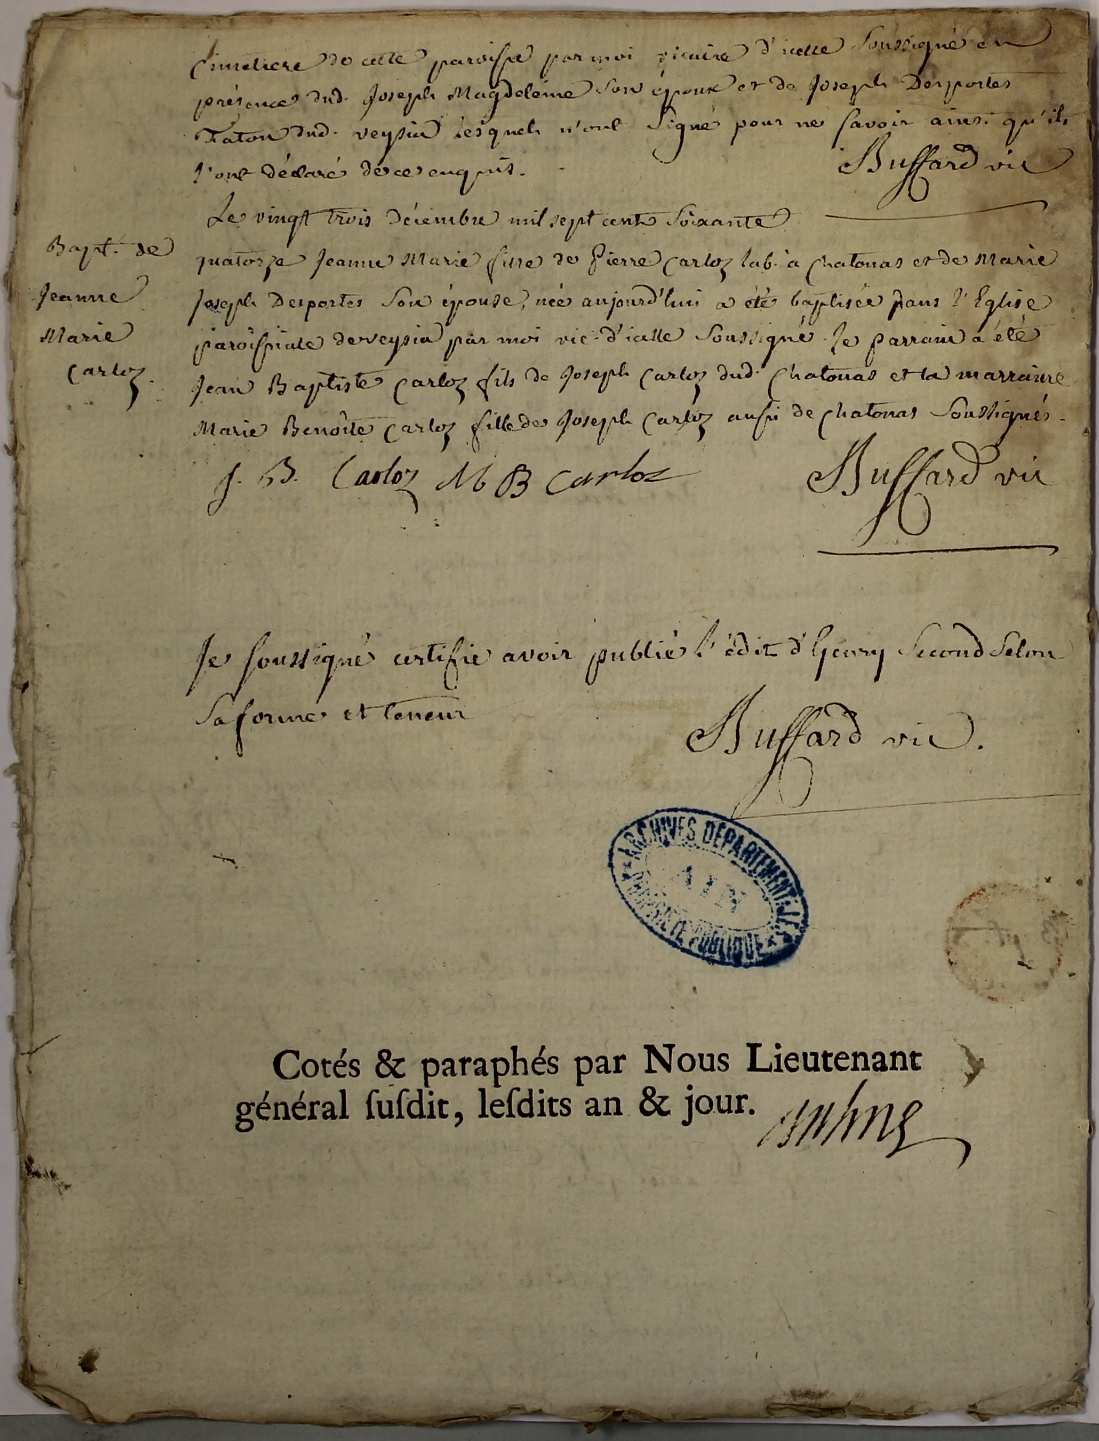 Cimetiere de cette paroisse par moi vicaire d'icelle soussigné en
présence dud. Joseph Magdeleine son époux et de Joseph Desportes
Faton dud. veysia lesquels n'ont signé pour ne savoir ainsi qu'ils
l'ont déclaré de ce enquis.
Buffard vic
Bapt. de
Jeanne
Marie
Carloz.
Le vingt trois décembre mil sept cent soixante
quatorze Jeanne Marie fille de Pierre Carloz lab. a Chatonas et de Marie
Joseph Desportes son épouse, née aujourd'hui a été baptisée dans l'Eglise
paroissiale de veysia par moi vic. d'icelle soussigné. le parrain a été
Jean Baptiste Carloz fils de Joseph Carloz dud. Chatonas et la marraine
Marie Benoite Carloz fille de Joseph Carloz aussi de Chatonas soussignés.
J. B. Carloz M B Carloz
Buffard vic
Je soussigné certifie avoir publié l'édit d'henry second selon
sa forme et teneur
Buffard vic.
ARCHIVES DEPARTEMENTALES
AIN
PROPRIETE PUBLIQUE
Cotés & paraphés par Nous Lieutenant
général ſuſdit, leſdits an & jour.